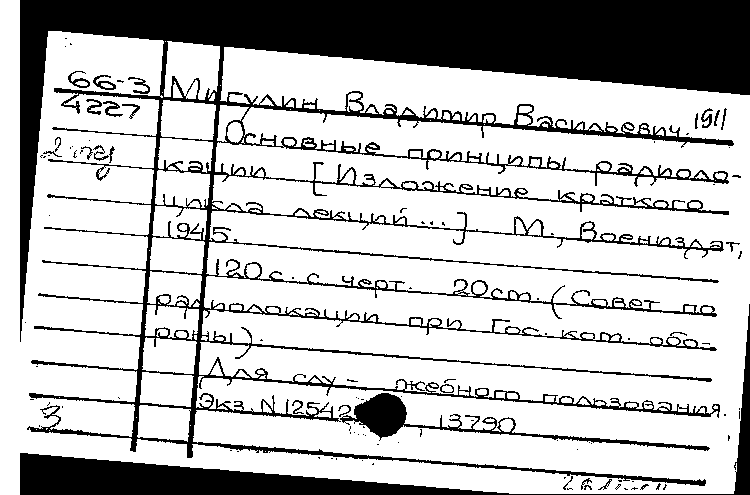 66-3
4227
Мигулин, Владимир Васильевич, 1911
Основные принципы радиоло-
кации [Изложение краткого
цикла лекций...]. М., Воениздат,
1945.
120 с. с черт. 20 см. (Совет по
радиолокации при Гос. ком. обо-
роны).
Для слу- жебного пользования.
Экз. N 12542, 13790
3